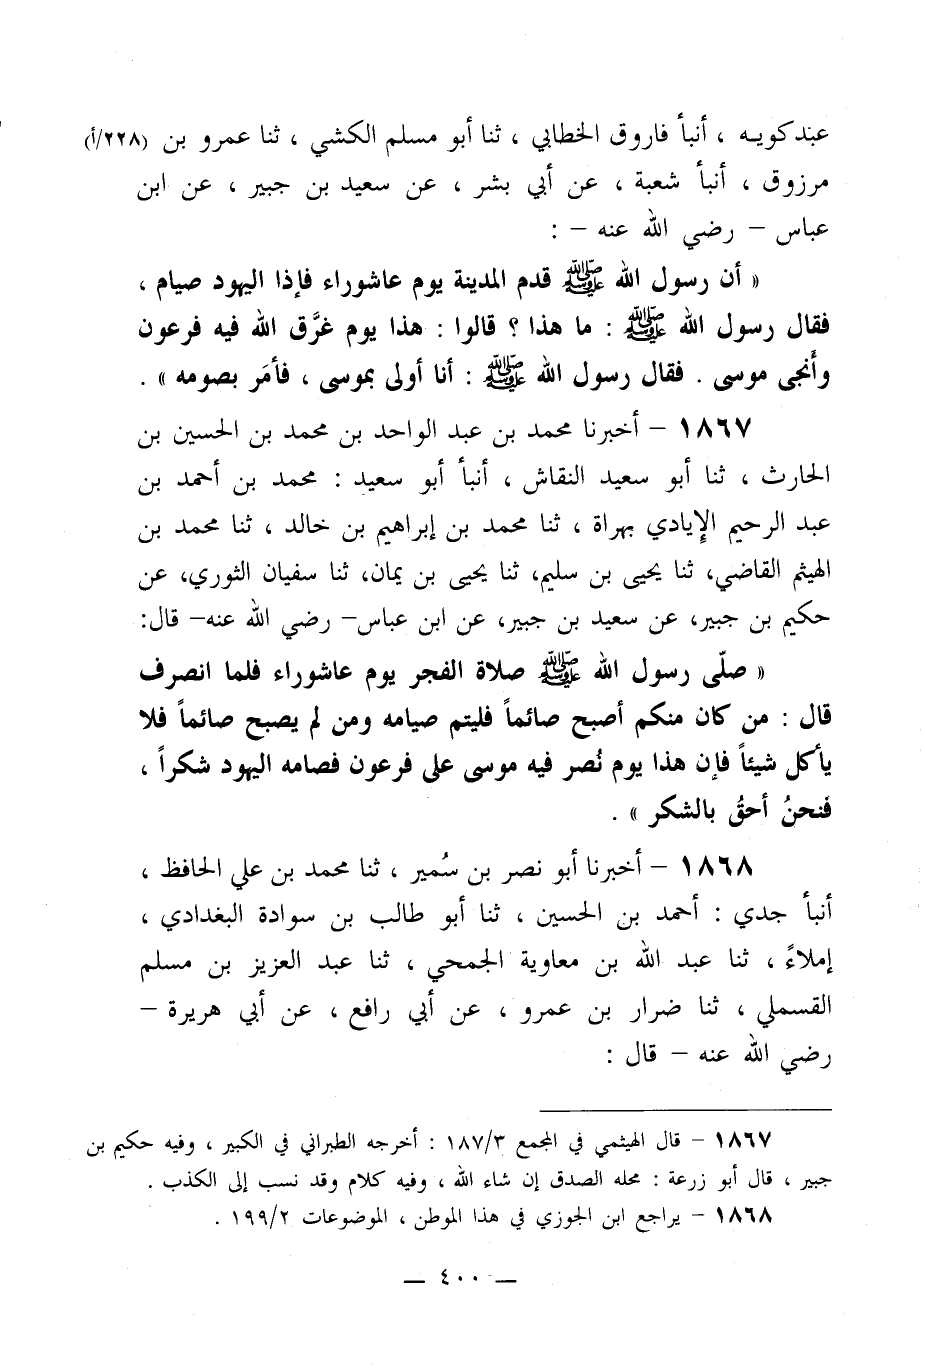 عبدكويـه ، أنبأ فاروق الخطابي ، ثنا أبو مسلم الكشي ، ثنا عمرو بن (٢٢٨/أ)
مرزوق ، أنبأ شعبة ، عن أبي بشر ، عن سعيد بن جبير ، عن ابن
عباس – رضي الله عنه – :
« أن رسول الله ﷺ قدم المدينة يوم عاشوراء فإذا اليهود صيام ،
فقال رسول الله ﷺ : ما هذا ؟ قالوا : هذا يوم غرَّق الله فيه فرعون
وأَنجى موسى . فقال رسول الله ﷺ : أنا أولى بموسى ، فأمَر بصومه » .
١٨٦٧ – أخبرنا محمد بن عبد الواحد بن محمد بن الحسين بن
الحارث ، ثنا أبو سعيد النقاش ، أنبأ أبو سعيد : محمد بن أحمد بن
عبد الرحيم الإيادي بهراة ، ثنا محمد بن إبراهيم بن خالد ، ثنا محمد بن
الهيثم القاضي، ثنا يحيى بن سليم، ثنا يحيى بن يمان، ثنا سفيان الثوري، عن
حكيم بن جبير، عن سعيد بن جبير، عن ابن عباس– رضي الله عنه– قال:
« صلّى رسول الله ﷺ صلاة الفجر يوم عاشوراء فلما انصرف
قال : من كان منكم أصبح صائماً فليتم صيامه ومن لم يصبح صائماً فلا
يأكل شيئاً فإن هذا يوم نُصر فيه موسى على فرعون فصامه اليهود شكراً ،
فَنحنُ أحقُ بالشكر » .
١٨٦٨ – أخبرنا أبو نصر بن سُمير ، ثنا محمد بن علي الحافظ ،
أنبأ جدي : أحمد بن الحسين ، ثنا أبو طالب بن سوادة البغدادي ،
إملاءً ، ثنا عبد الله بن معاوية الجمحي ، ثنا عبد العزيز بن مسلم
القسملي ، ثنا ضرار بن عمرو ، عن أبي رافع ، عن أبي هريرة –
رضي الله عنه – قال :
١٨٦٧ – قال الهيثمي في المجمع ١٨٧/٣ : أخرجه الطبراني في الكبير ، وفيه حكيم بن
جبير ، قال أبو زرعة : محله الصدق إن شاء الله ، وفيه كلام وقد نسب إلى الكذب .
١٨٦٨ – يراجع ابن الجوزي في هذا الموطن ، الموضوعات ١٩٩/٢ .
— ٤٠٠ —